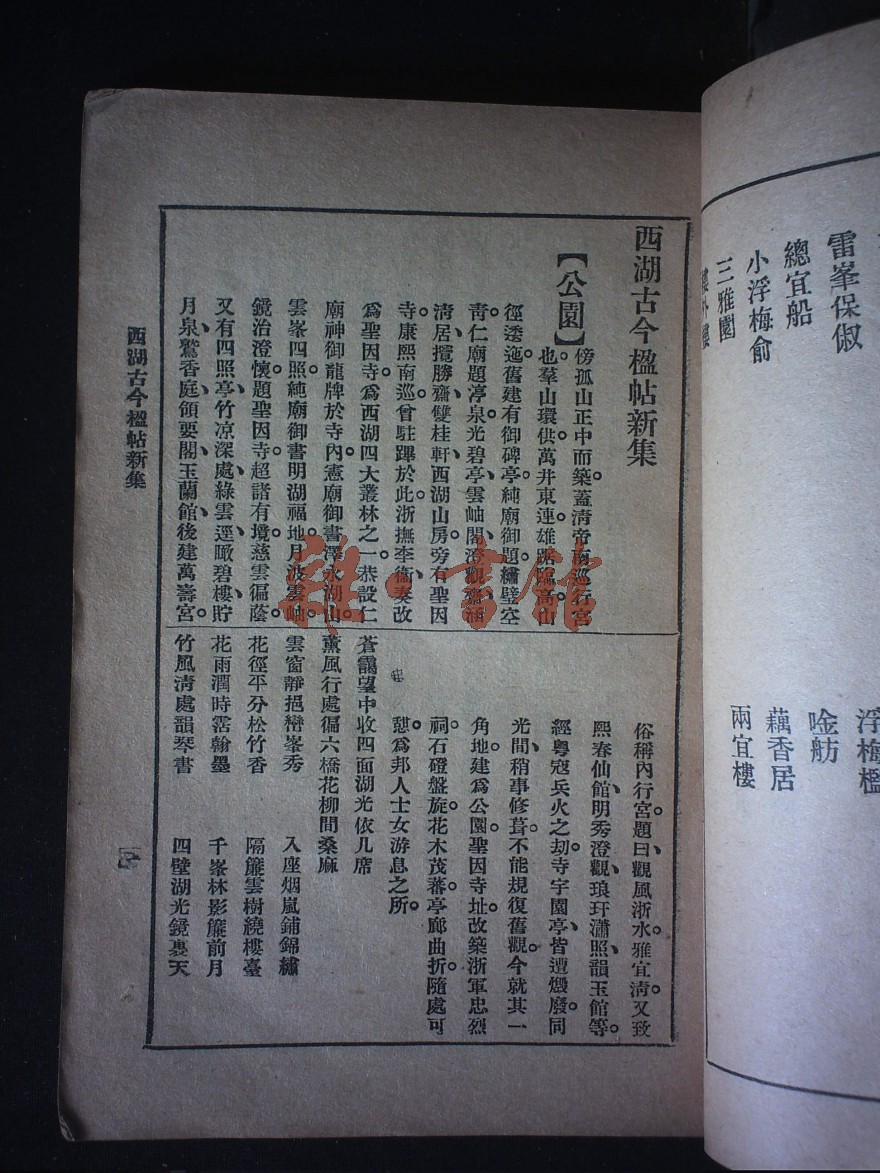 西湖古今楹帖新集
【公園】
傍孤山正中而築蓋淸帝南巡行宮
也。羣山環供。萬井東連。雄踞臨高。山
徑透迤。舊建有御碑亭。純廟御題繡壁空
靑。仁廟題渟泉光碧亭、雲岫閣、澄觀齋、涵
淸居、攬勝齋、雙桂軒、西湖山房。旁有聖因
寺。康熙南巡曾駐蹕於此。浙撫李衞奏改
爲聖因寺。爲西湖四大叢林之一。恭設仁
廟神御龍牌於寺內。憲廟御書澤永湖山。
雲峯四照。純廟御書明湖福地。月波雲岫。
鏡治澄懷。題聖因寺。超諸有境。慈雲徧蔭。
又有四照亭、竹凉深處、綠雲逕、瞰碧樓、貯
月泉、鷲香庭、領要閣、玉蘭館。後建萬壽宮。
俗稱內行宮。題曰觀風浙水。雅宜淸。又致
熙春仙館、明秀澄觀、琅玕瀟照、韻玉館等。
經粵寇兵火之劫。寺宇園亭、皆遭燬廢。同
光間、稍事修葺。不能規復舊觀。今就其一
角地。建爲公園。聖因寺址。改築浙軍忠烈
祠。石磴盤旋。花木茂蕃。亭廊曲折。隨處可
憇。爲邦人士女游息之所。
蒼靄望中收四面湖光依几席
薰風行處徧六橋花柳間桑麻
雲窗靜挹巒峯秀　入座烟嵐鋪錦繡
花徑平分松竹香　隔簾雲樹繞樓臺
花雨潤時霑翰墨　千峯林影簾前月
竹風淸處韻琴書　四壁湖光鏡裏天
西湖古今楹帖新集
一
雷峯保俶
總宜船
小浮梅俞
三雅園
樓外樓
浮梅檻
唫舫
藕香居
兩宜樓